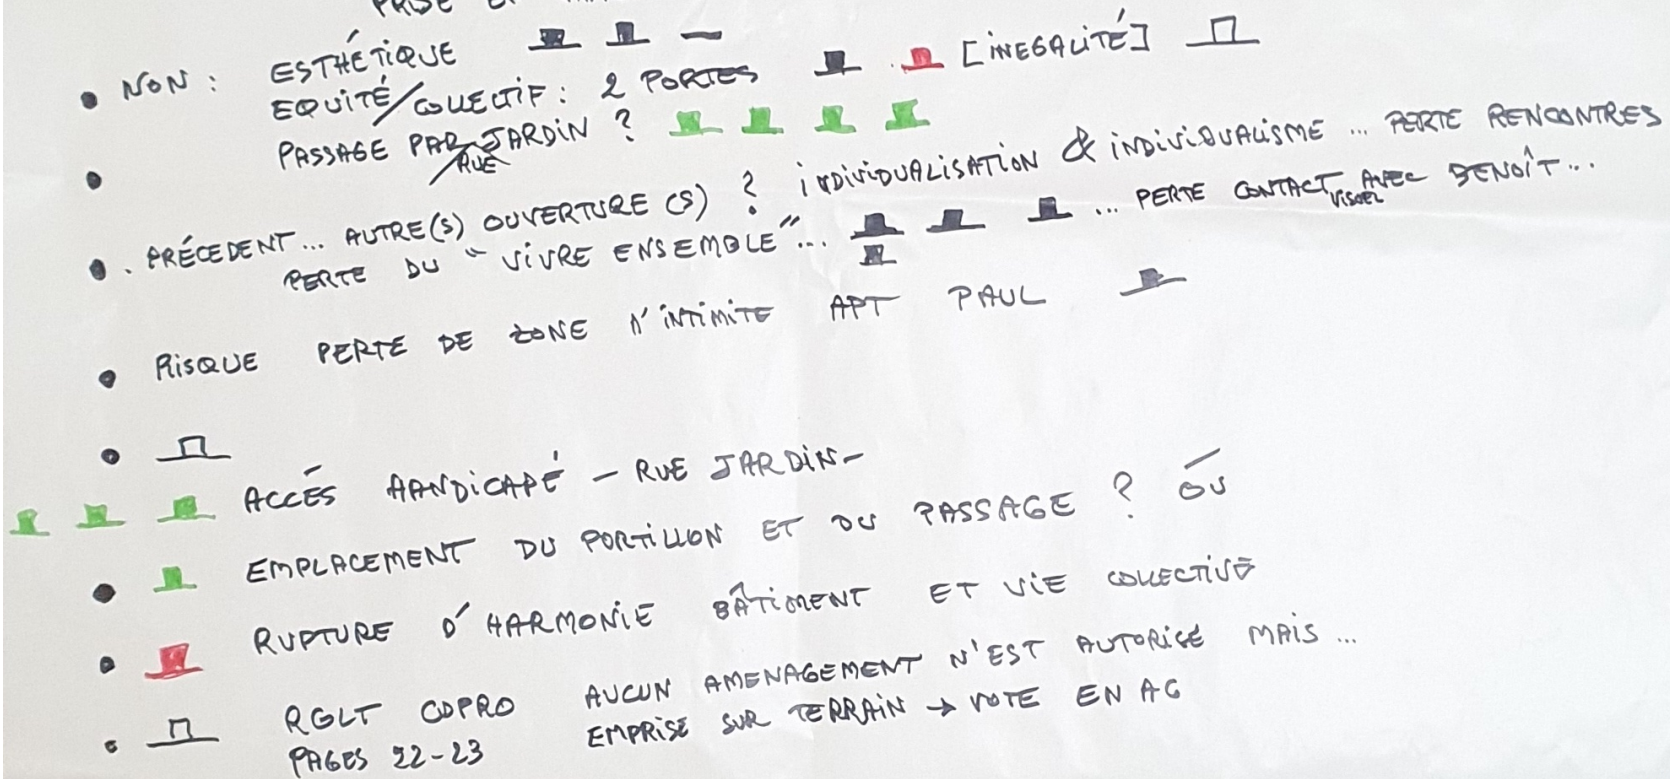 NON : ESTHÉTIQUE
EQUITÉ/COLLECTIF : 2 PORTES [INEGALITÉ]
PASSAGE PAR JARDIN ?
/RUE
. PRÉCEDENT... AUTRE(S) OUVERTURE(S) ? INDIVIDUALISATION & INDIVIDUALISME ... PERTE RENCONTRES
PERTE DU "VIVRE ENSEMBLE"... ... PERTE CONTACT VISUEL AVEC BENOÎT...
RISQUE PERTE DE ZONE D'INTIMITE APT PAUL
ACCÉS HANDICAPÉ - RUE JARDIN -
EMPLACEMENT DU PORTILLON ET DU PASSAGE ? OÙ
RUPTURE D'HARMONIE BÂTIMENT ET VIE COLLECTIVE
RGLT COPRO AUCUN AMENAGEMENT N'EST AUTORISÉ MAIS ...
PAGES 22-23 EMPRISE SUR TERRAIN → VOTE EN AG